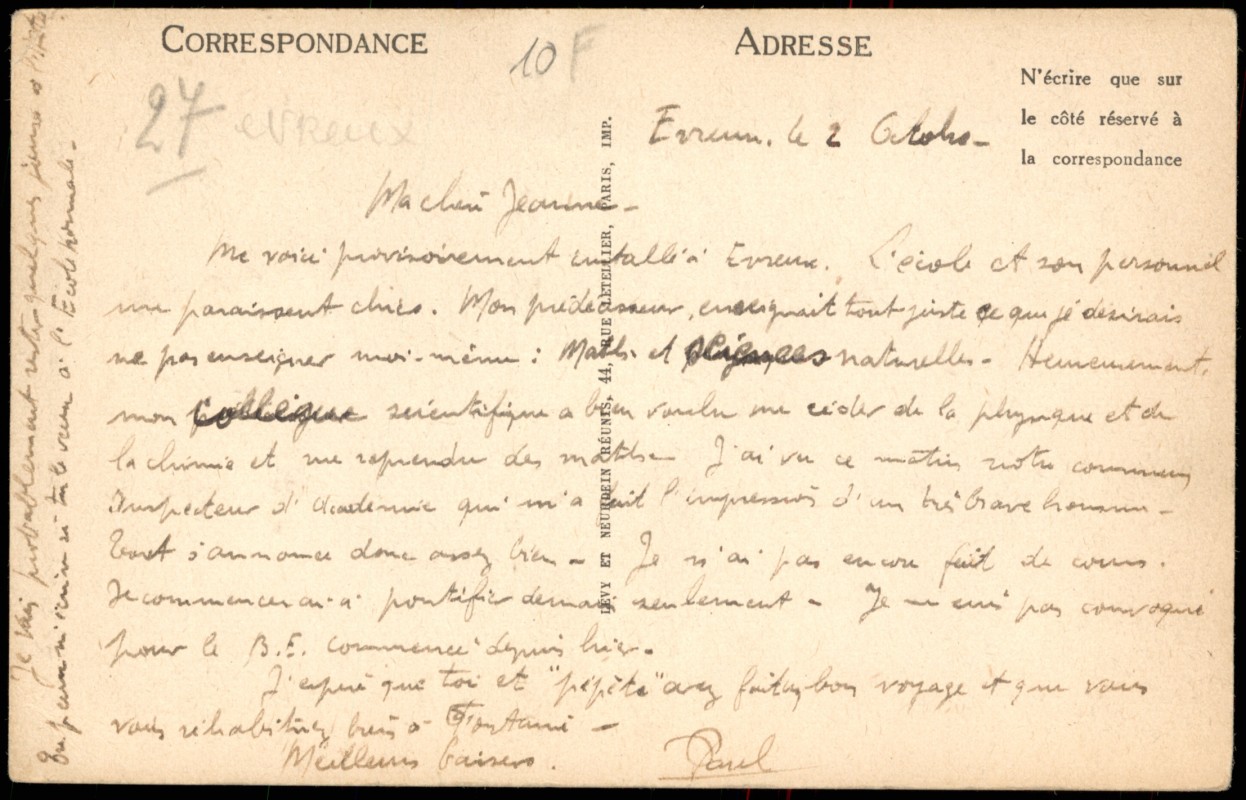 CORRESPONDANCE
ADRESSE
10 F
N'écrire que sur
le côté réservé à
la correspondance
27 EVREUX
LÉVY ET NEURDEIN RÉUNIS, 44, RUE LETELLIER, PARIS, IMP.
Evreux. le 2 Octobre
Ma chère Jeanne -
Me voici provisoirement installé à Evreux. L'école et son personnel
me paraissent chics. Mon prédécesseur, enseignait tout juste ce que je désirais
ne pas enseigner moi-même : Maths et sciences naturelles - Heureusement,
mon collègue scientifique a bien voulu me céder de la physique et de
la chimie et me reprendre des maths - J'ai vu ce matin notre commun
Inspecteur d'Académie qui m'a fait l'impression d'un très brave homme -
Tout s'annonce donc assez bien - Je n'ai pas encore fait de cours.
Je commencerai à pontifier demain seulement - Je ne suis pas convoqué
pour le B.E. commencé depuis hier -
J'espère que toi et "pépète" avez fait un bon voyage et que vous
vous réhabituez bien à
Meilleurs baisers.
Paul
Je vais probablement rester quelques jours
Tu peux m'écrire si tu le veux à l'Ecole normale -